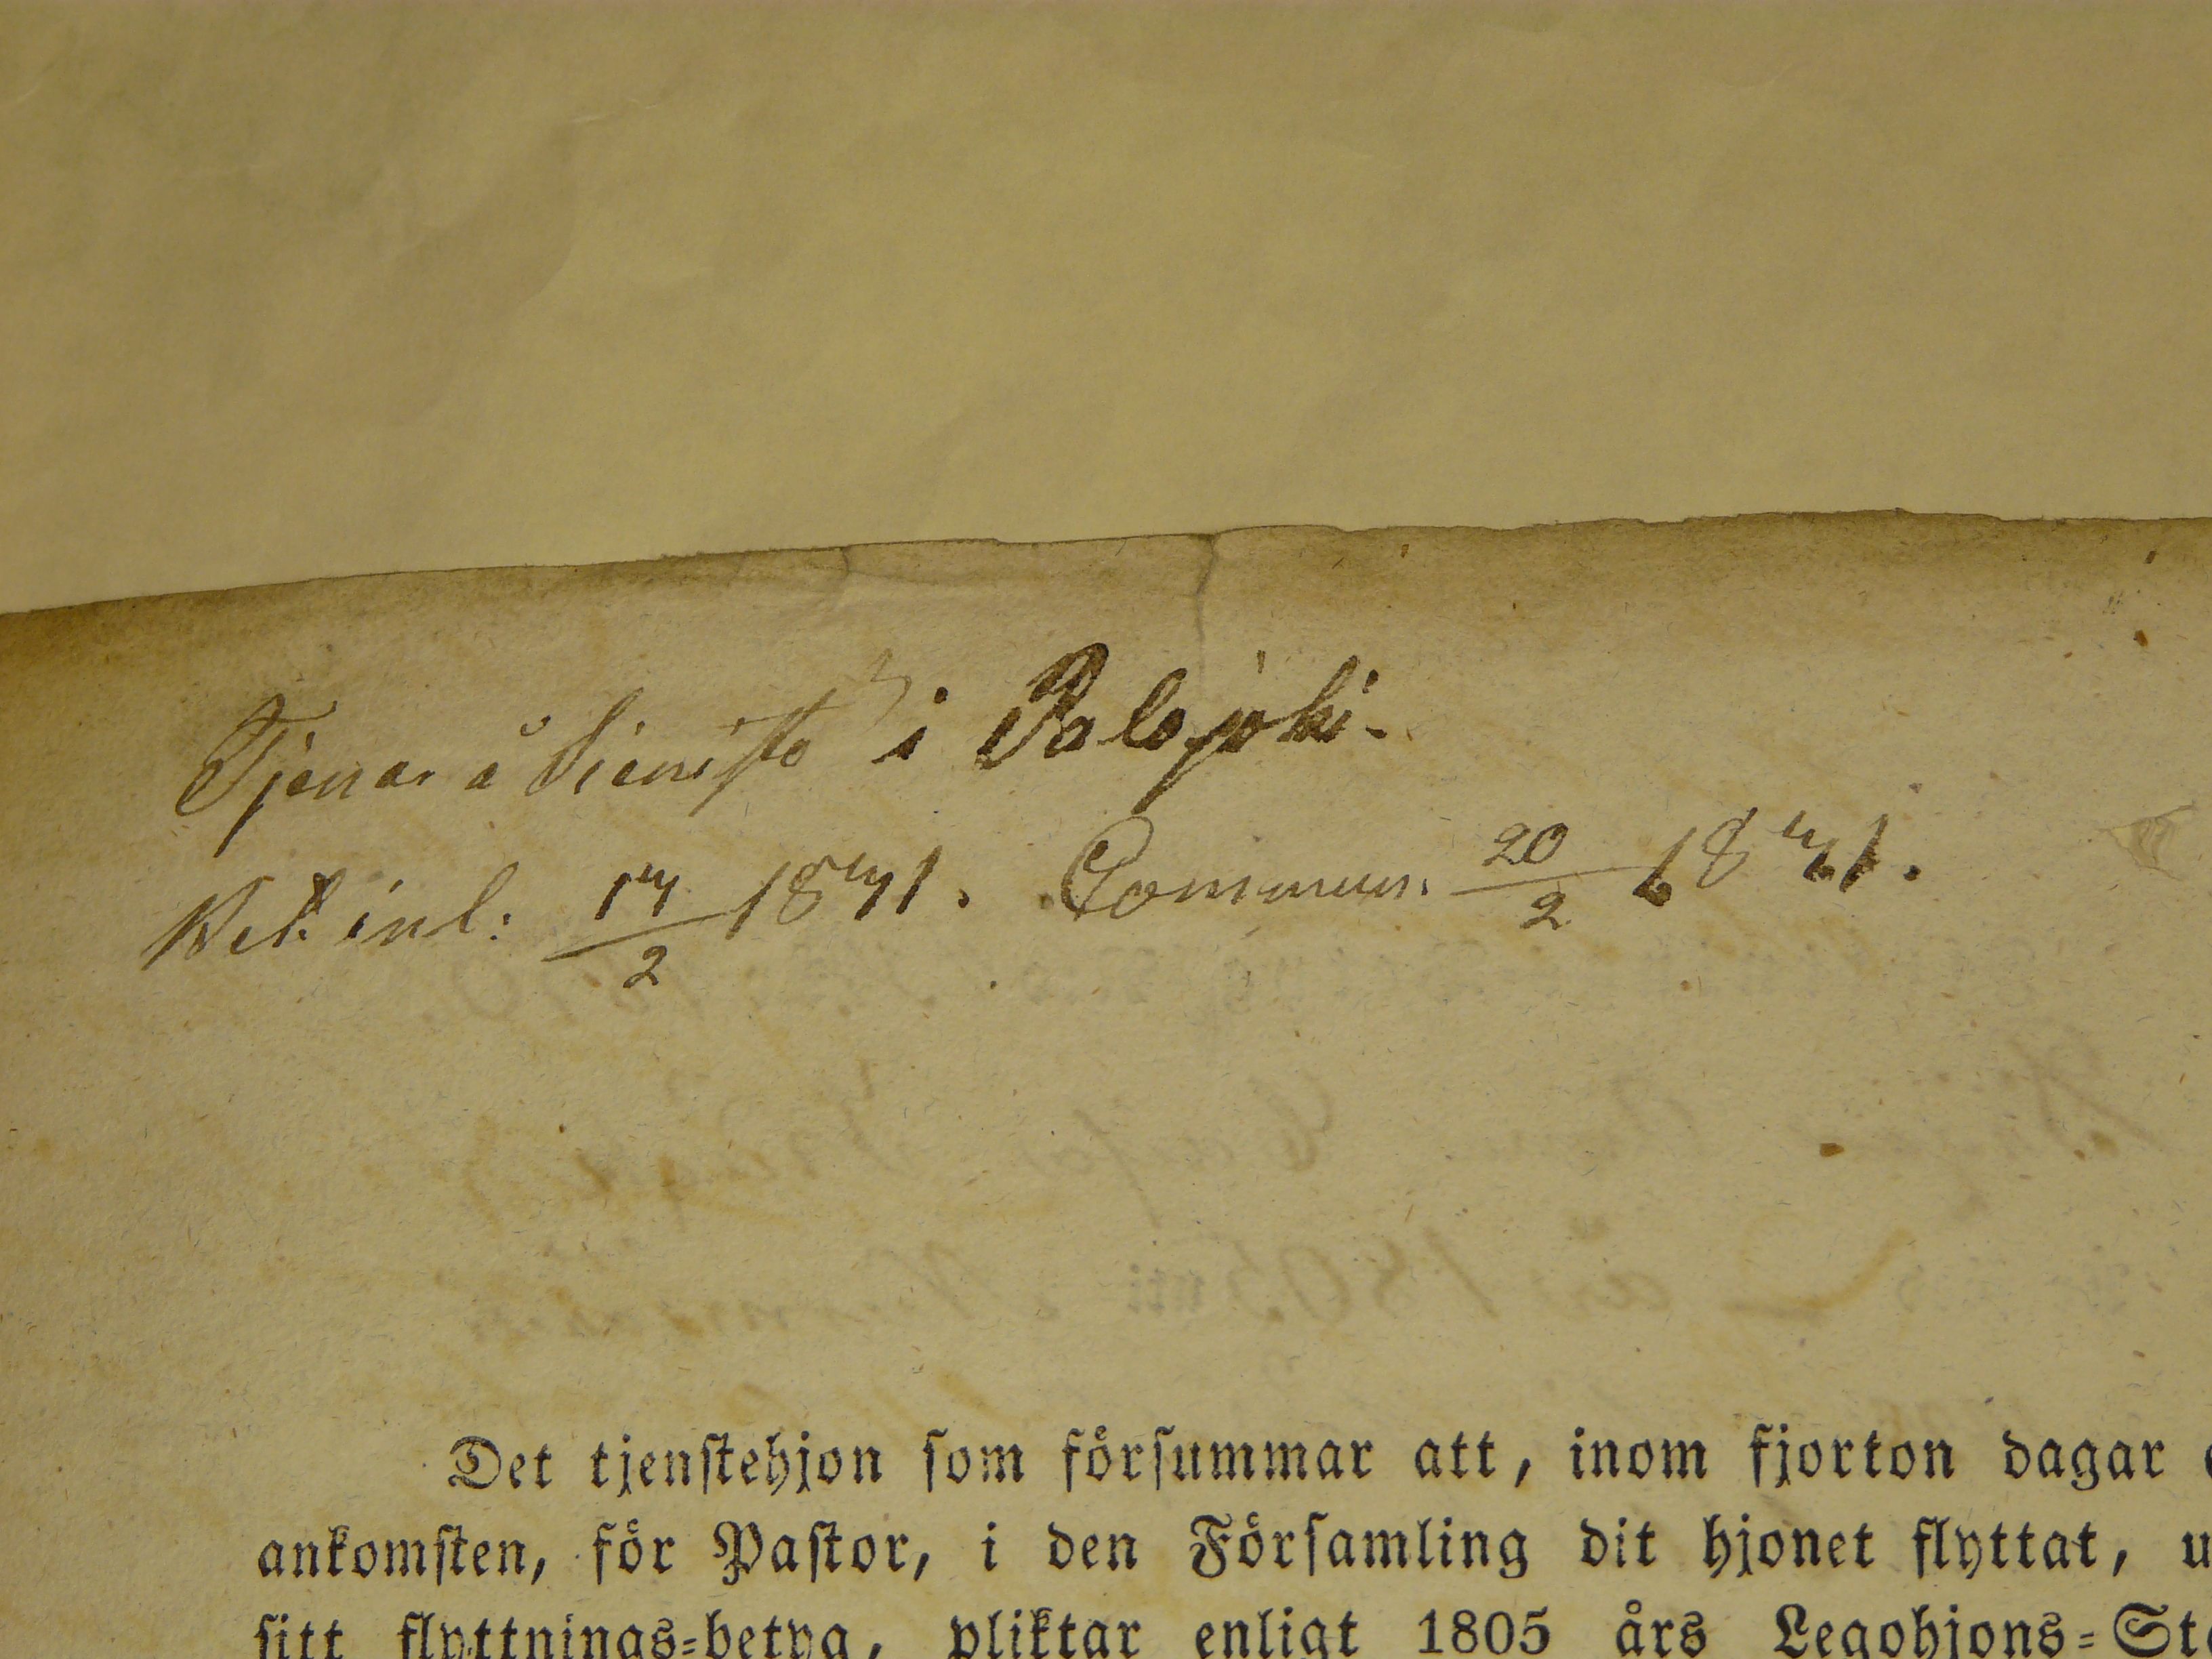 Tjenar å Sieristo i Palojoki.
Bet. inl: 14/2 1841. Commun. 20/2 1841.
Det tjenstehjon som försummar att, inom fjorton dagar
ankomsten, för Pastor, i den Församling dit hjonet flyttat, u
sitt flyttnings-betyg, pliktar enligt 1805 års Legohjons-St